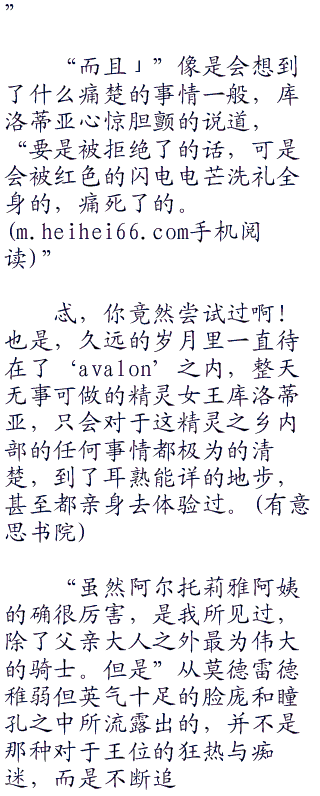 ”
“而且」”像是会想到
了什么痛楚的事情一般，库
洛蒂亚心惊胆颤的说道，
“要是被拒绝了的话，可是
会被红色的闪电电芒洗礼全
身的，痛死了的。
(m.heihei66.com手机阅
读)”
忒，你竟然尝试过啊！
也是，久远的岁月里一直待
在了‘avalon’之内，整天
无事可做的精灵女王库洛蒂
亚，只会对于这精灵之乡内
部的任何事情都极为的清
楚，到了耳熟能详的地步，
甚至都亲身去体验过。(有意
思书院)
“虽然阿尔托莉雅阿姨
的确很厉害，是我所见过，
除了父亲大人之外最为伟大
的骑士。但是”从莫德雷德
稚弱但英气十足的脸庞和瞳
孔之中所流露出的，并不是
那种对于王位的狂热与痴
迷，而是不断追